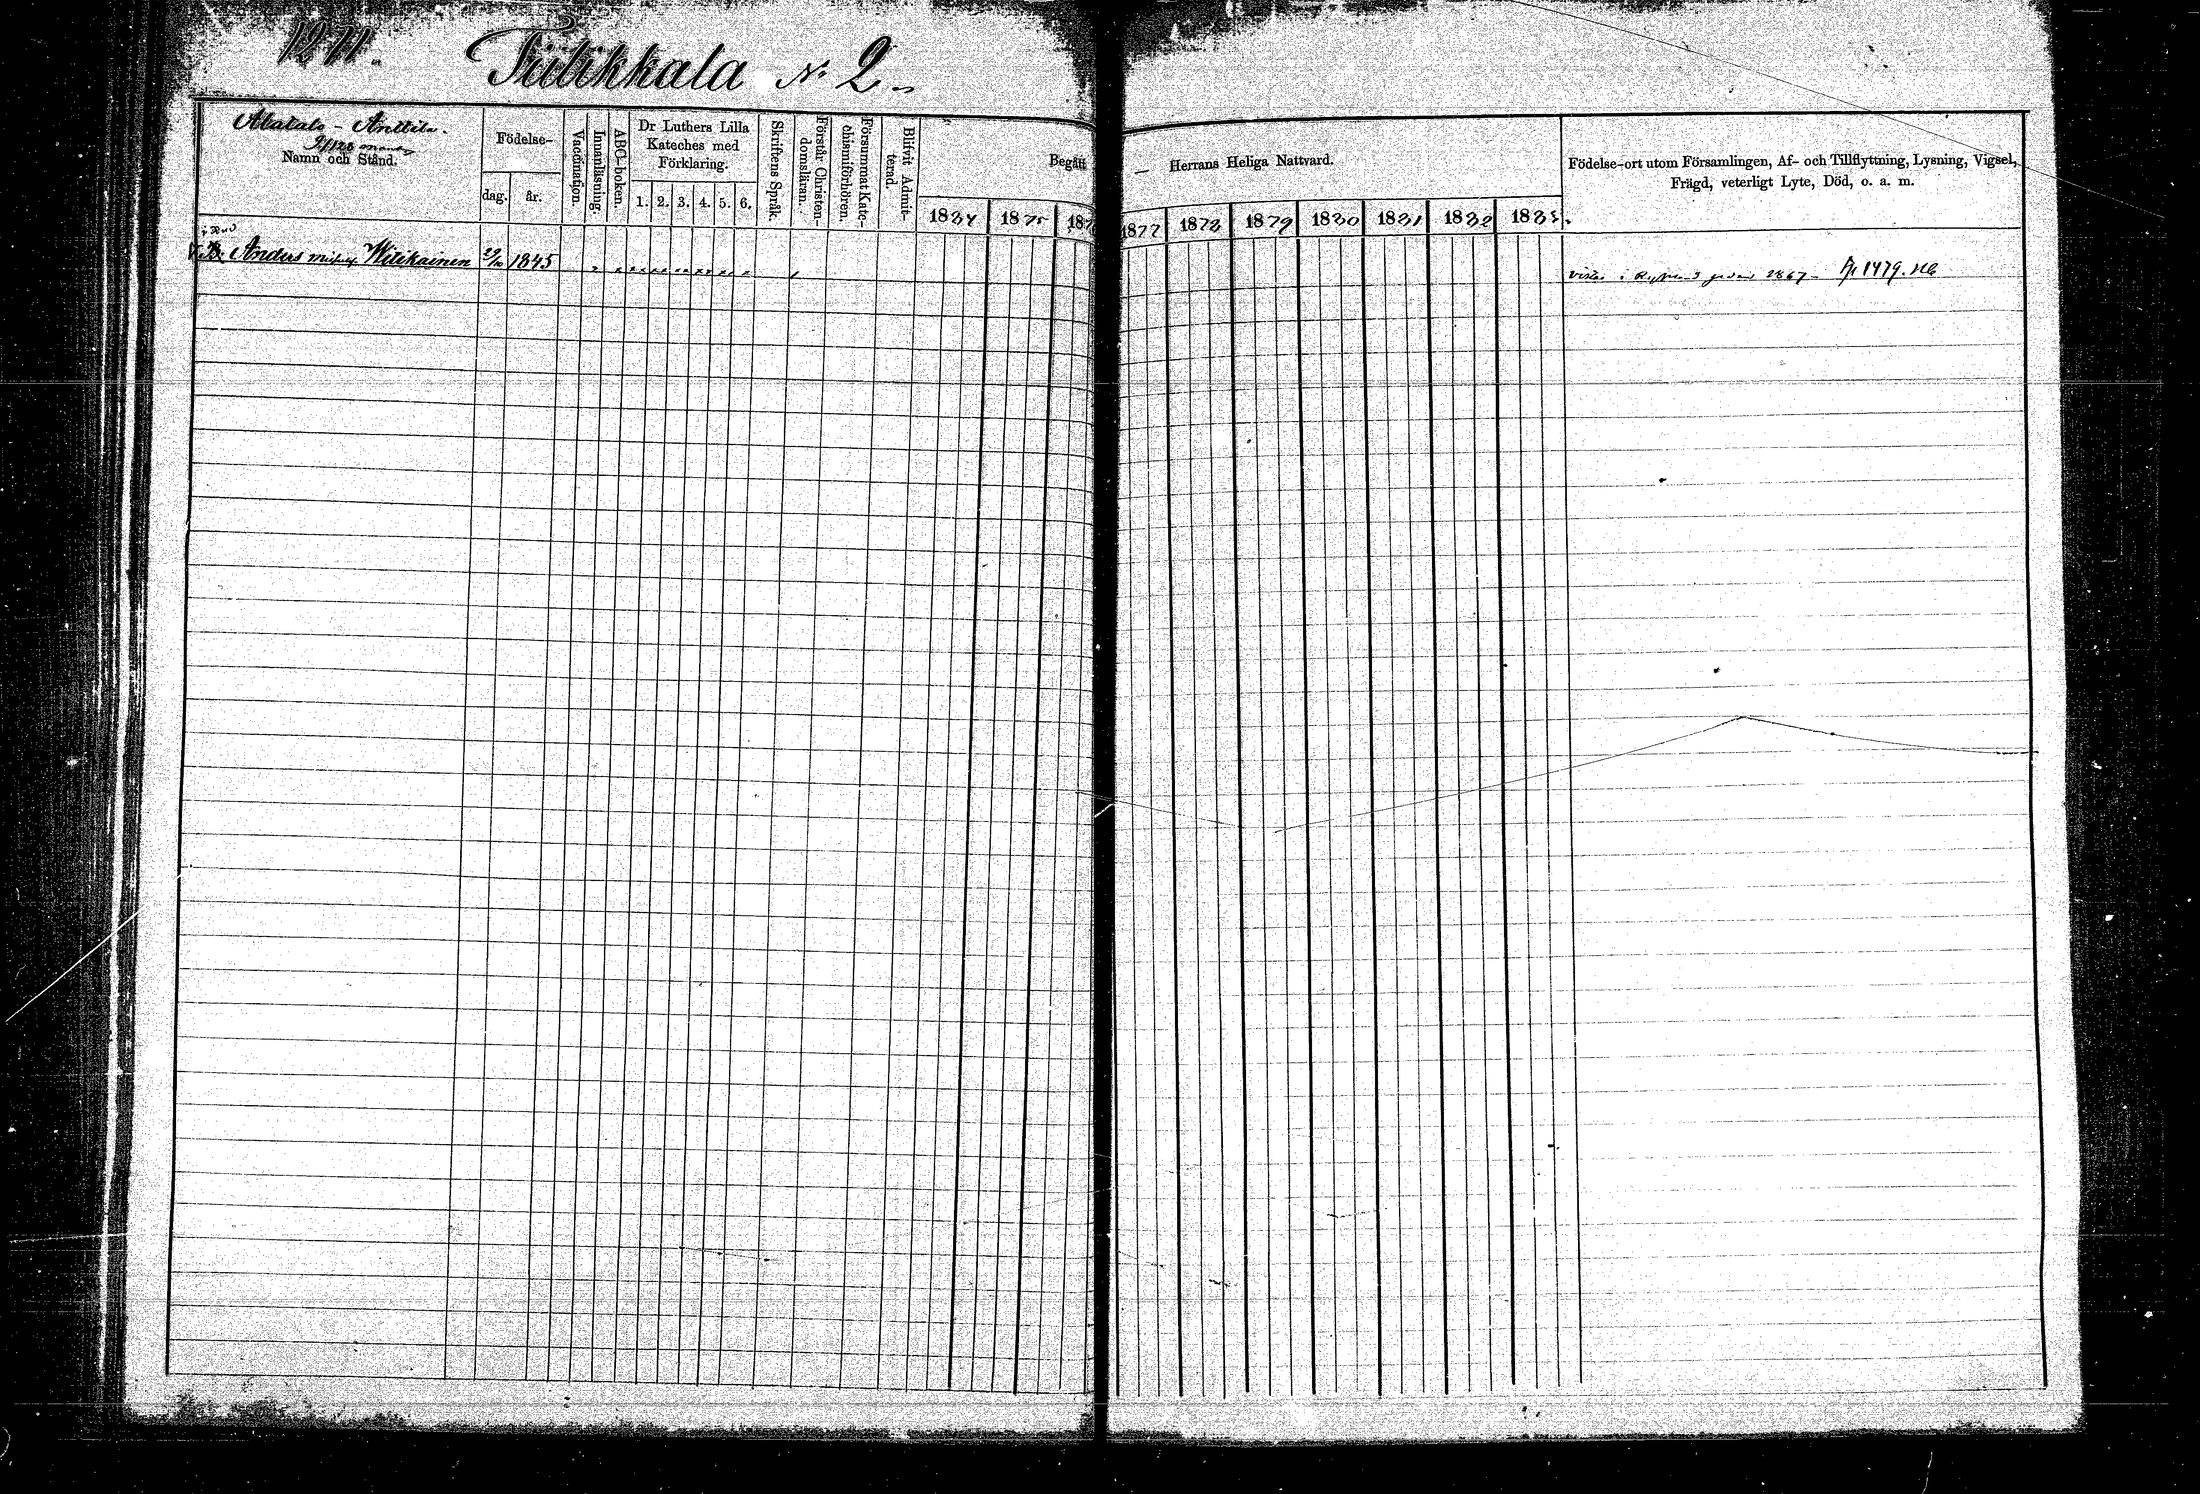 1211.
Tiilikkala No 2.
Alatalo - Anttila.
Namn och Stånd.
Födelse-
dag.
år.
Vaccination.
Innanläsning.
ABC-boken.
Dr Luthers Lilla
Kateches med
Förklaring.
1. 2. 3. 4. 5. 6.
Skriftens Språk.
Förstår Christen-
domsläran.
Försummat Kate-
chismiförhören.
Blifvit Admit-
terad.
Begått — Herrans Heliga Nattvard.
1874 1875 187 1877 1878 1879 1880 1881 1882 1883.
Födelse-ort utom Församlingen, Af- och Tillflyttning, Lysning, Vigsel,
Frägd, veterligt Lyte, Död, o. a. m.
Anders Witikainen 1845
i 1867 - 1479.